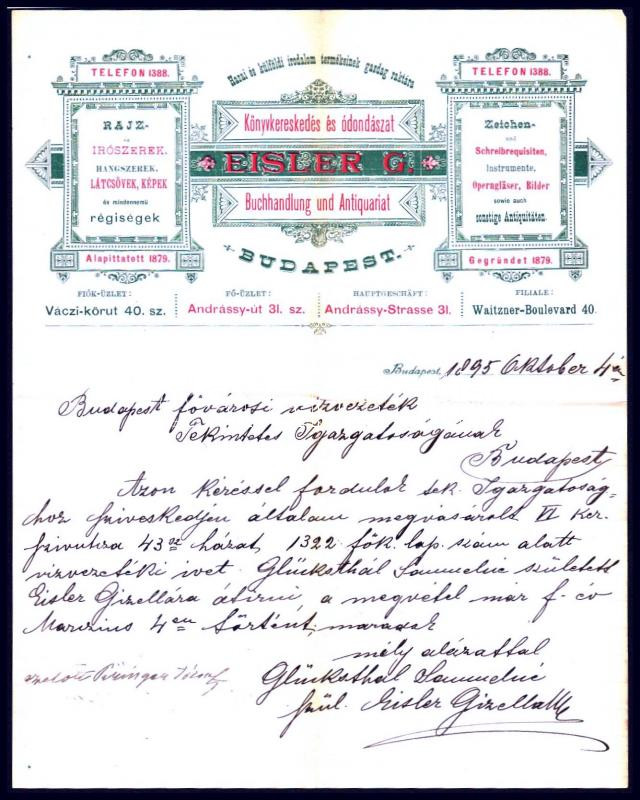 Hazai és külföldi irodalom termékeinek gazdag raktára
TELEFON 1388.
RAJZ-
és
IRÓSZEREK.
HANGSZEREK.
LÁTCSÖVEK, KÉPEK
és mindennemű
régiségek
Alapittatott 1879.
Könyvkereskedés és ódondászat
EISLER G.
Buchhandlung und Antiquariat
BUDAPEST.
TELEFON 1388.
Zeichen-
und
Schreibrequisiten,
Instrumente,
Operngläser, Bilder
sowie auch
sonstige Antiquitäten.
Gegründet 1879.
FIÓK-ÜZLET:
Váczi-körut 40. sz.
FŐ-ÜZLET:
Andrássy-út 31. sz.
HAUPTGESCHÄFT:
Andrássy-Strasse 31.
FILIALE:
Waitzner-Boulevard 40.
Budapest, 1895 Oktober 4én
Budapest fővárosi vizvezeték
Tekintetes Igazgatoságának
Budapest
Azon kéréssel fordulok tek. Igazgatoság-
hoz sziveskedjen általam megvásárolt VI ker
szivutza 43sz házat, 1322 fők. lap. szám alatt
vizvezetéki ivet. Glücksthál Samuelné született
Eisler Gizellára átirni, a megvétel már f. év
Marczius 4én történt, maradok
mély alázattal
Glücksthál Samuelné
szül. Eisler Gizella
József